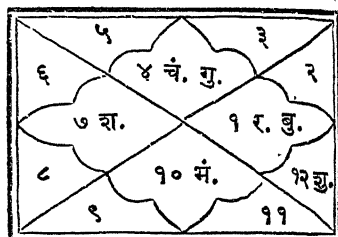 ५ ३
६ ४ चं. गु. २
७ श. १ र. बु.
८ १० मं. १२ शु.
९ ११